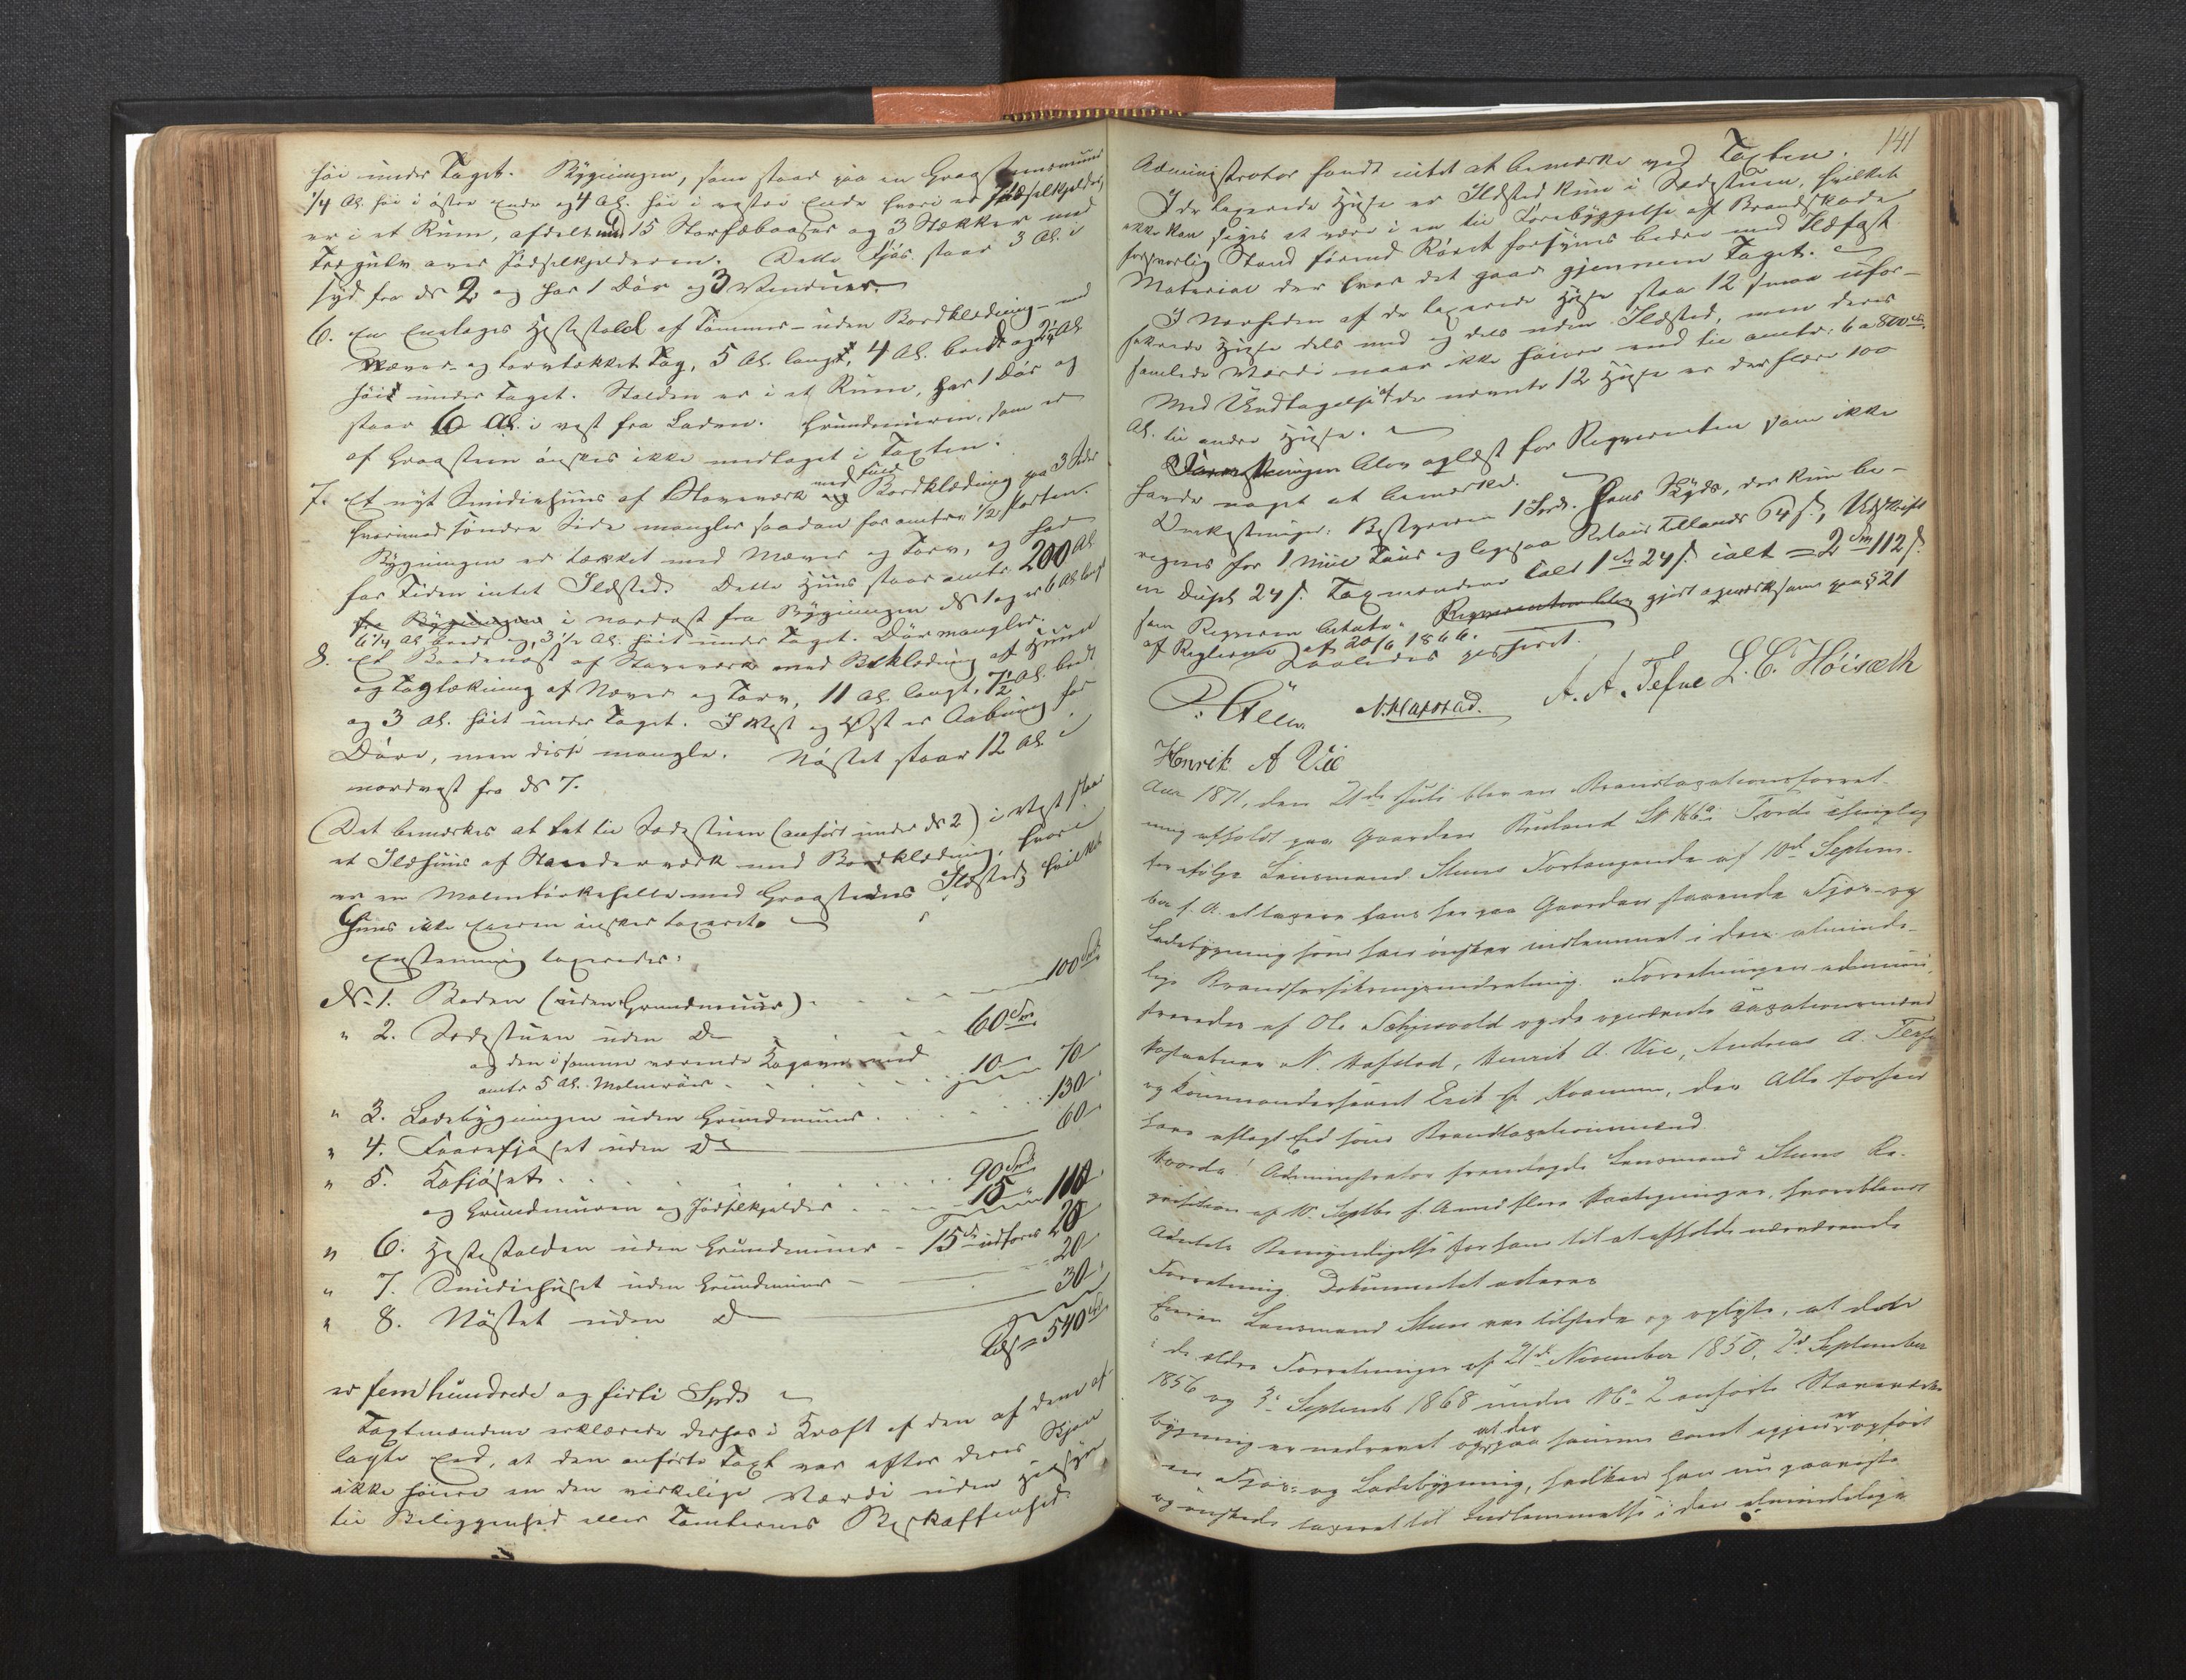 høi under Taget. Bygningen, som staar paa en Graasteensmuur
1/4 Al. høi i østre Ende og 4 Al. høi i vestre Ende hvori er Gjødselkjelder,
er i et Rum, afdelt med 15 Storfæbaaser og 3 Stækker med
Trægulv over Gjødselkjelderen. Dette Fjøs staar 3 Al. i
syd fra № 2 og har 1 Dør og 3 Vinduer.
6. En Enetages Hestestald af Tømmer – uden Bordklædning – med
Næver- og torvtækket Tag, 5 Al. lang, 4 Al. bred og 2 1/2 Al.
høi under Taget. Stalden er i et Rum, har 1 Dør og
staar 6 Al. i vest fra Laden. Grundmuren, som er
af Graasteen ønskes ikke medtaget i Taxten.
7. Et nyt Smidiehuus af Stavværk med fuld Bordklædning paa 3 Sider
hvorimod søndre Side mangler saadan for omtr. 1/2 Parten.
Bygningen er tækket med Næver og Torv, og har
for Tiden intet Ildsted. Dette Huus staar omtr. 200 Al.
fra Bygningen i nordost fra Bygningen № 1 og er 6 Al. langt
6 1/4 Al. bredt og 3 1/2 Al. høit under Taget. Dør mangler.
8. Et Baadenøst af Stavværk med Beklædning af Huun
og Tagtækning af Næver og Torv, 11 Al. langt, 7 1/2 Al. bredt
og 3 Al. høit under Taget. I Vest og Øst er Aabning for
Døre, men disse mangle. Nøstet staar 12 Al. i
nordvest fra № 7.
(Det bemærkes at tæt til Sædestuen (anført under № 2) i Vest staar
et Ildhuus af Standerværk med Bordklædning, hvori
er en Malmtørkehelle med Graasteens Ildsted, hvilket
Huus ikke Eieren ønsker taxeret.
Gjenstanding taxeredes:
№ 1. Boden (uden Grundmuur) 100 Spd
" 2. Sædestuen uden Do 60 Spd
og den i samme værende Kogeovn med
omtr. 5 Al. Malmrør 10 70
" 3. Ladebygningen uden Grundmuur 130
" 4. Faarefjøset uden Do 60
" 5. Kofjøset 90 Spd
og Grundmuren og Gjødselkjelder 15 110
" 6. Hestestalden uden Grundmuur – 15 Spd udføres 20
" 7. Smidiehuset uden Grundmuur 20
" 8. Nøstet uden Do 30
Tils = 540 Spd
er fem hundrede og firti Spd
Taxtmændene erklærede derhos i Kraft af den af dem af-
lagte Eed, at den anførte Taxt var efter deres Skjøn
ikke høiere en den virkelige Værdi uden Hensyn
til Beliggenhed eller Tomternes Beskaffenhed.
141
Administrator fandt intet at bemærke ved Taxten.
I de taxerede Huse er Ildsted kun i Sædestuen, hvilket
ikke kan siges at være i en til Forebyggelse af Brandskade
forsvarlig Stand førend Røret forsynes bedre med Ildfast
Material der hvor det gaar gjennem Taget.
I Nærheden af de taxerede Huse staa 12 smaa ufor-
sikrede Huse dels med og dels uden Ildsted, men deres
samlede Værdi naar ikke høiere end til omtr: 6 a 800 Spd.
Med Undtagelse af de nævnte 12 Huse er der flere 100
Al. til andre Huse.
Forretningen blev oplæst for Reqvirenten som ikke
havde noget at bemærke.
Omkostninger: Bestyreren 1 Spd. Hans Skyds, der kun be-
regnes for 1 Miil Tour og ligesaa Retour tillands 64 s, Udskrift
in Duplo 24 s. Taxmændene Told 1 Spd 24 s. ialt = 2 Spd 112 s.
som Reqvirenten betalte. Reqvirenten blev gjort opmærksom paa § 21
af Reglerne af 20/6 1866.
Saaledes passeret.
P. Steen N. Hafstad. A. A. Tefre L. C. Høiseth
Henrik A Vie
Aar 1871, den 21de Juli blev en Brandtaxationsforret-
ning afholdt paa Gaarden Bruland L. № 66a i Førde Thinglag
ifølge Lensmand Stuns Forlangende af 10de Septem-
ber f. A. at taxere hans her paa Gaarden staaende Fjøs- og
Ladebygning som han ønsker indlemmet i den alminde-
lige Brandforsikringsindretning. Forretningen admini-
streredes af Ole Sæhjevold og de opnævnte Taxationsmænd
Postaabner N. Hafstad, Henrik A. Vie, Andreas A. Tefre
og Kommandersergent Erik J. Kvamme, der Alle forhen
have aflagt Eed som Brandtaxationsmænd.
Hvorda! Administrator fremlagde Lensmand Stuns Re-
qvisition af 10. Septbr f. A. med flere Paategninger, hvoriblandt
Amtets Bemyndigelse for ham til at afholde nærværende
Forretning. Dokumentet vedtoges
Eieren Lensmand Stuns var tilstede og oplyste, at den
i de ældre Forretninger af 21de November 1850, 2d September
1856 og 3d Septemb 1868 under № 2 anførte Stavværks-
bygning er nedrevet og at der paa samme Tomt igjen er opført
en Fjøs- og Ladebygning, hvilken han nu paaviste
og ønskede taxeret til Indlemmelse i den almindelige